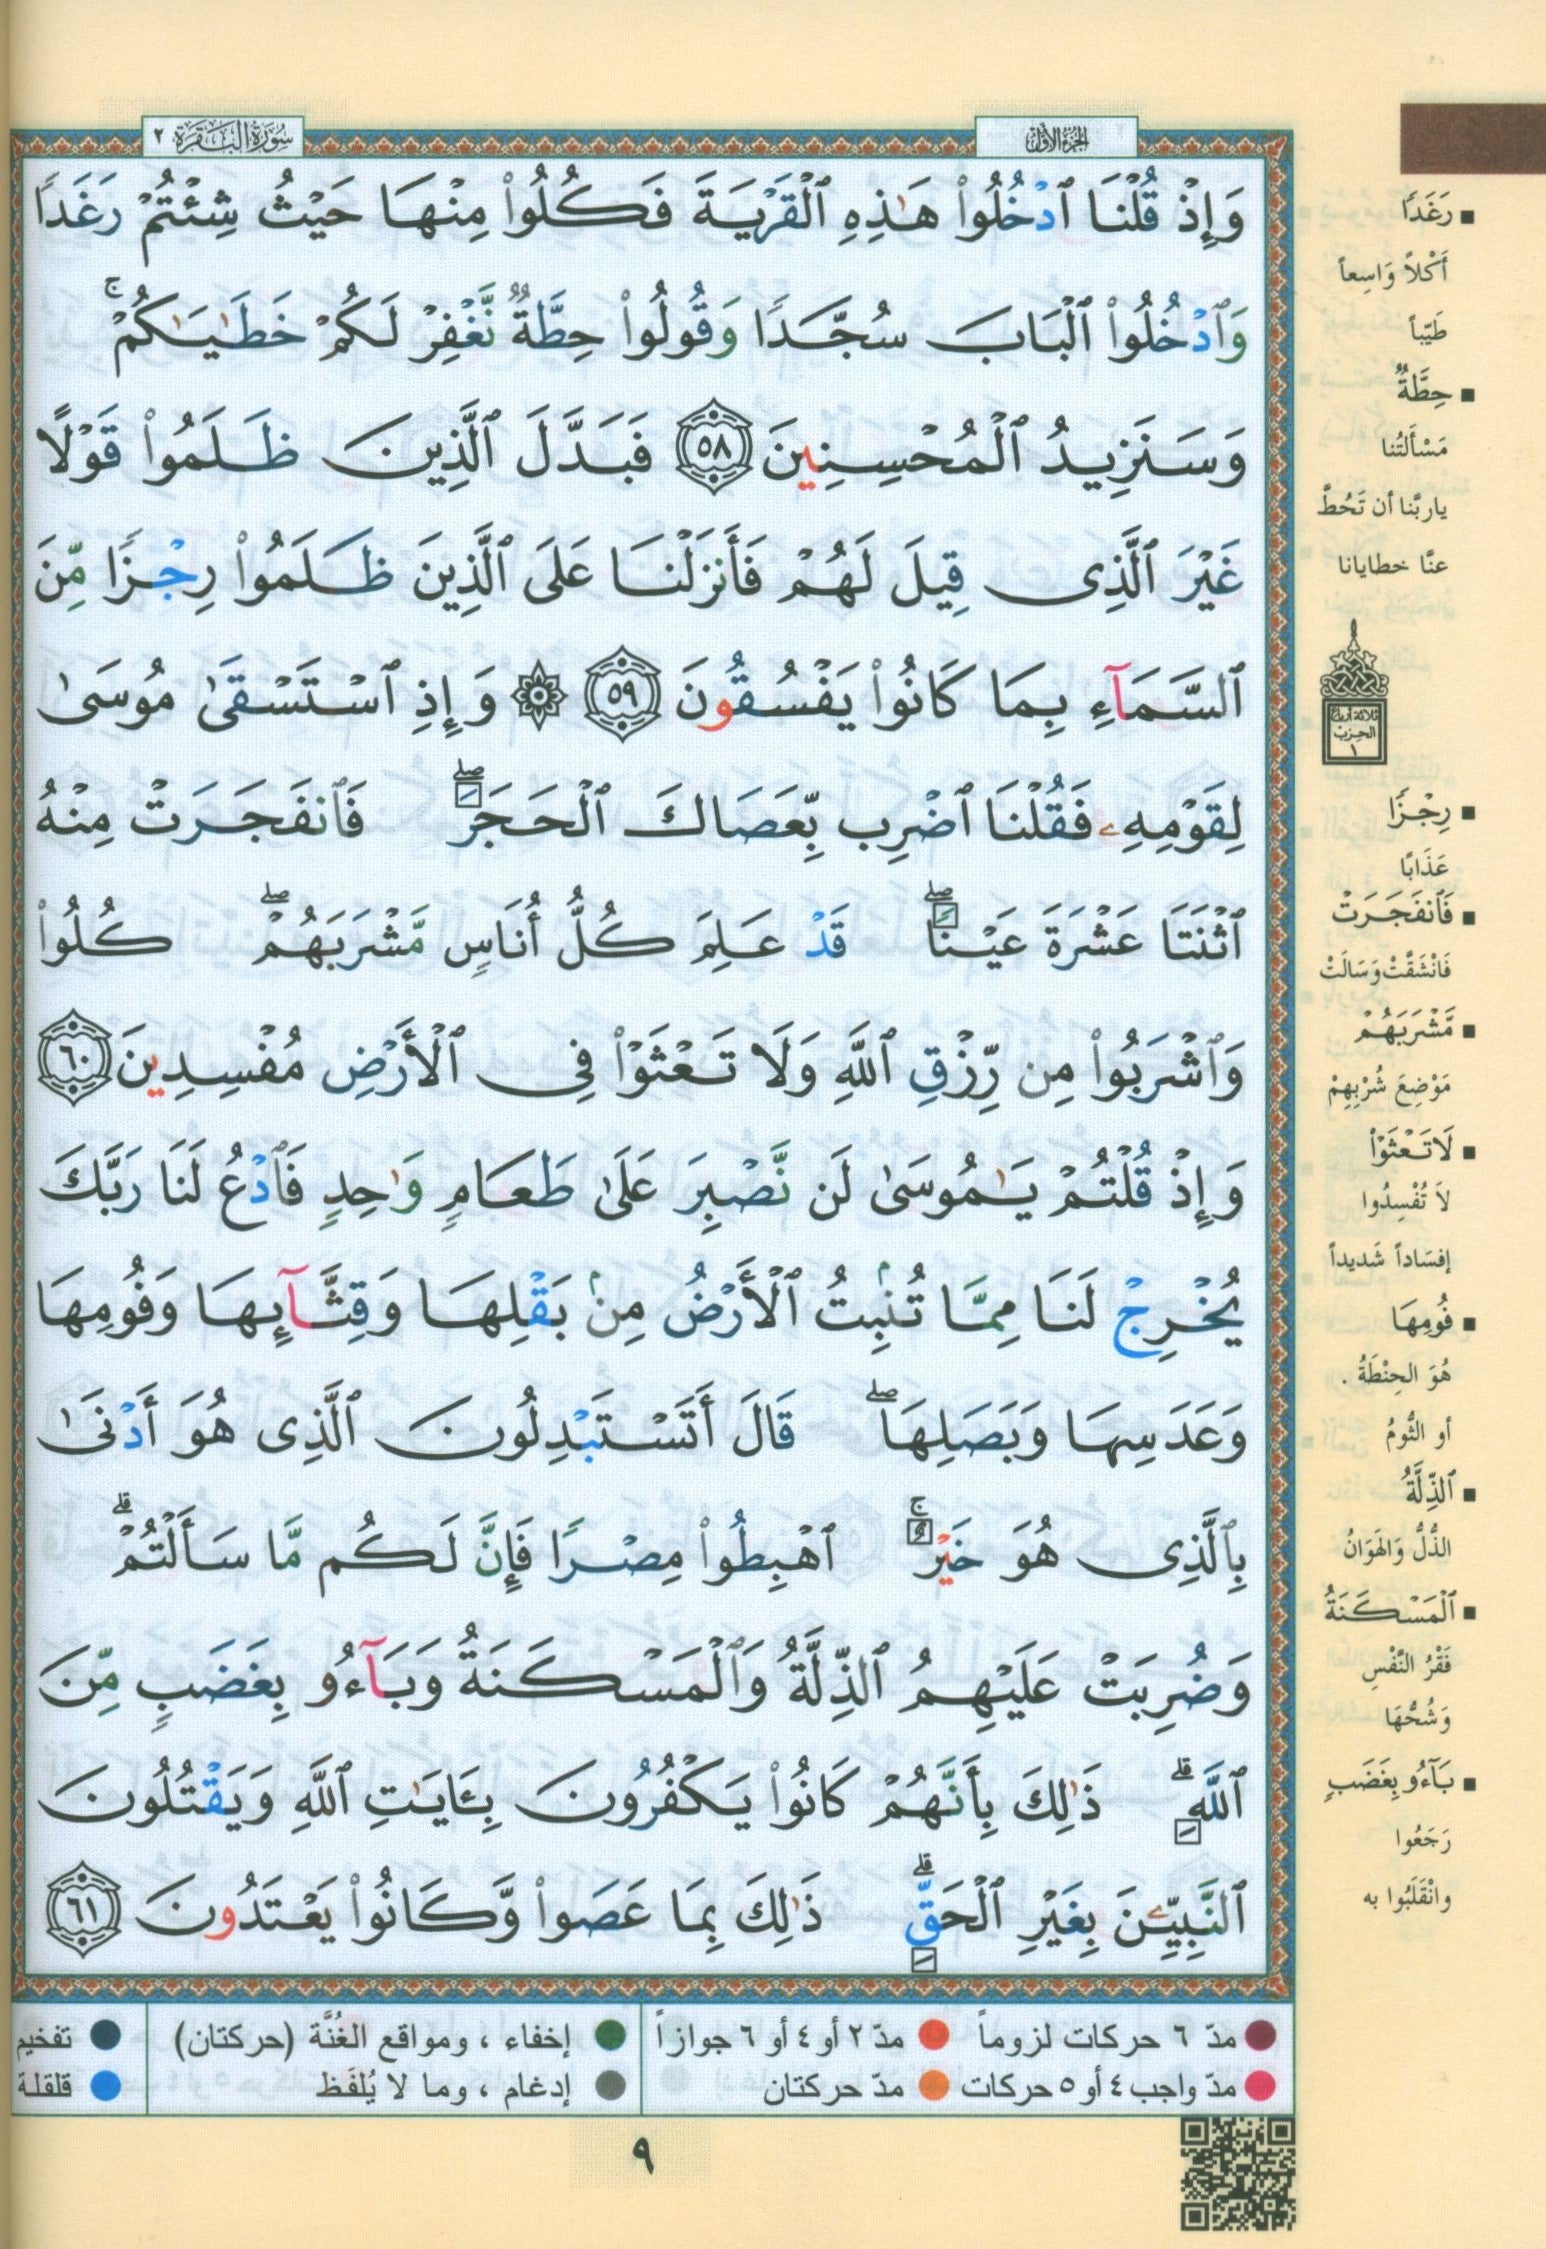 سُورَةُ البَقَرَة ٢
الجُزءُ الأَوَّل
وَإِذْ قُلْنَا ٱدْخُلُوا۟ هَـٰذِهِ ٱلْقَرْيَةَ فَكُلُوا۟ مِنْهَا حَيْثُ شِئْتُمْ رَغَدًا
وَٱدْخُلُوا۟ ٱلْبَابَ سُجَّدًا وَقُولُوا۟ حِطَّةٌ نَّغْفِرْ لَكُمْ خَطَـٰيَـٰكُمْ ۚ
وَسَنَزِيدُ ٱلْمُحْسِنِينَ ٥٨ فَبَدَّلَ ٱلَّذِينَ ظَلَمُوا۟ قَوْلًا
غَيْرَ ٱلَّذِى قِيلَ لَهُمْ فَأَنزَلْنَا عَلَى ٱلَّذِينَ ظَلَمُوا۟ رِجْزًا مِّنَ
ٱلسَّمَآءِ بِمَا كَانُوا۟ يَفْسُقُونَ ٥٩ ۞ وَإِذِ ٱسْتَسْقَىٰ مُوسَىٰ
لِقَوْمِهِۦ فَقُلْنَا ٱضْرِب بِّعَصَاكَ ٱلْحَجَرَ ۖ فَٱنفَجَرَتْ مِنْهُ
ٱثْنَتَا عَشْرَةَ عَيْنًا ۖ قَدْ عَلِمَ كُلُّ أُنَاسٍ مَّشْرَبَهُمْ ۖ كُلُوا۟
وَٱشْرَبُوا۟ مِن رِّزْقِ ٱللَّهِ وَلَا تَعْثَوْا۟ فِى ٱلْأَرْضِ مُفْسِدِينَ ٦٠
وَإِذْ قُلْتُمْ يَـٰمُوسَىٰ لَن نَّصْبِرَ عَلَىٰ طَعَامٍ وَٰحِدٍ فَٱدْعُ لَنَا رَبَّكَ
يُخْرِجْ لَنَا مِمَّا تُنۢبِتُ ٱلْأَرْضُ مِنۢ بَقْلِهَا وَقِثَّآئِهَا وَفُومِهَا
وَعَدَسِهَا وَبَصَلِهَا ۖ قَالَ أَتَسْتَبْدِلُونَ ٱلَّذِى هُوَ أَدْنَىٰ
بِٱلَّذِى هُوَ خَيْرٌ ۚ ٱهْبِطُوا۟ مِصْرًا فَإِنَّ لَكُم مَّا سَأَلْتُمْ ۗ
وَضُرِبَتْ عَلَيْهِمُ ٱلذِّلَّةُ وَٱلْمَسْكَنَةُ وَبَآءُو بِغَضَبٍ مِّنَ
ٱللَّهِ ۗ ذَٰلِكَ بِأَنَّهُمْ كَانُوا۟ يَكْفُرُونَ بِـَٔايَـٰتِ ٱللَّهِ وَيَقْتُلُونَ
ٱلنَّبِيِّـۧنَ بِغَيْرِ ٱلْحَقِّ ۗ ذَٰلِكَ بِمَا عَصَوا۟ وَّكَانُوا۟ يَعْتَدُونَ ٦١
▪ رَغَدًا
أَكْلاً وَاسِعاً
طَيِّباً
▪ حِطَّةٌ
مَسْأَلَتُنَا
يا ربَّنا أن تَحُطَّ
عنَّا خطايانا
ثلاثة أرباع
الحزب
١
▪ رِجْزًا
عَذَابًا
▪ فَٱنفَجَرَتْ
فَانْشَقَّتْ وَسَالَتْ
▪ مَّشْرَبَهُمْ
مَوْضِعَ شُرْبِهِمْ
▪ لَا تَعْثَوْا۟
لاَ تُفْسِدُوا
إفسَاداً شَديداً
▪ فُومِهَا
هُوَ الحِنْطَةُ .
أو الثُّومُ
▪ ٱلذِّلَّةُ
الذُّلُّ وَالهَوَانُ
▪ ٱلْمَسْكَنَةُ
فَقْرُ النَّفْسِ
وَشُحُّهَا
▪ بَآءُو بِغَضَبٍ
رَجَعُوا
وانْقَلَبُوا به
مدّ ٦ حركات لزوماً ● مدّ ٢ أو ٤ أو ٦ جوازاً ● إخفاء ، ومواقع الغُنَّة (حركتان) ● تفخيم
مدّ واجب ٤ أو ٥ حركات ● مدّ حركتان ● إدغام ، وما لا يُلفَظ ● قلقلة
٩